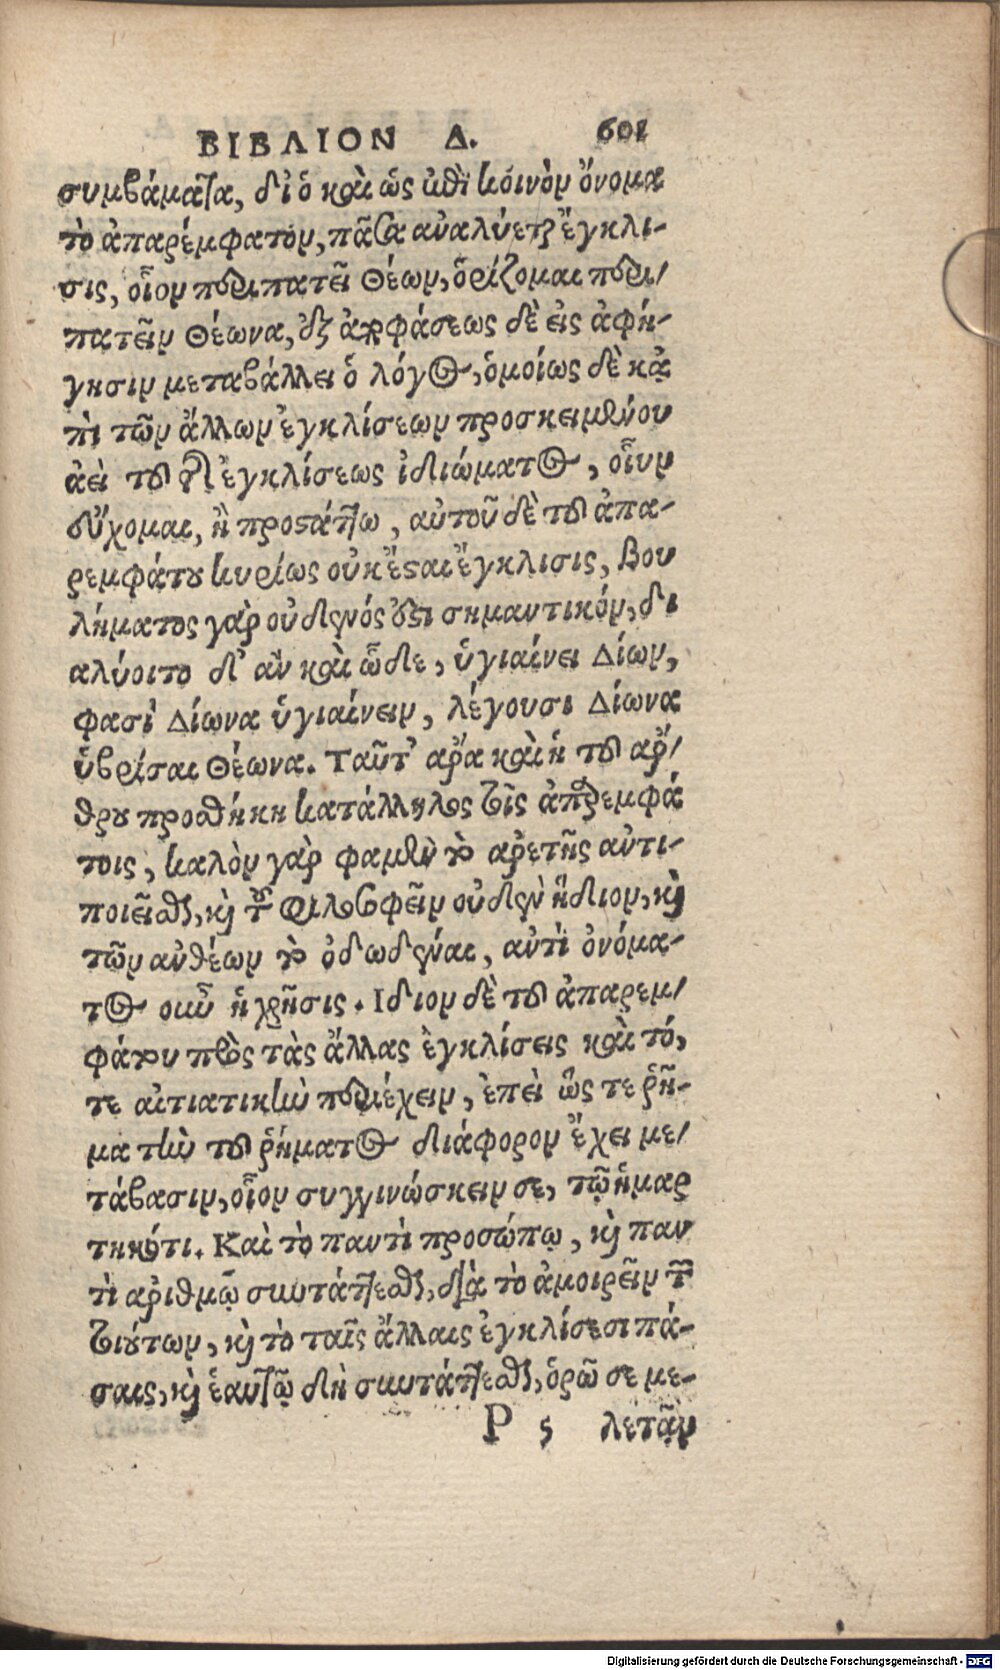 ΒΙΒΛΙΟΝ Δ. 601
συμβάματα, δι' ὃ καὶ ὡς ἐπὶ κοινὸν ὄνομα
τὸ ἀπαρέμφατον, πᾶσα ἀναλύεται ἔγκλι-
σις, οἷον περιπατεῖ Θέων, ὁρίζομαι περι/
πατεῖν Θέωνα, ἐξ ἀποφάσεως δὲ εἰς ἀφή-
γησιν μεταβάλλει ὁ λόγος, ὁμοίως δὲ κἀ
πὶ τῶν ἄλλων ἐγκλίσεων προσκειμένου
ἀεὶ τοῦ τῆς ἐγκλίσεως ἰδιώματος, οἷον
εὔχομαι, ἢ προστάττω, αὐτοῦ δὲ τοῦ ἀπα-
ρεμφάτου κυρίως οὐκ ἔσται ἔγκλισις, βου
λήματος γὰρ οὐδενός ἐστι σημαντικόν, δι
αλύοιτο δ' ἂν καὶ ὧδε, ὑγιαίνει Δίων,
φασὶ Δίωνα ὑγιαίνειν, λέγουσι Δίωνα
ὑβρίσαι Θέωνα. Ταῦτ' ἄρα καὶ ἡ τοῦ ἄρ/
θρου προσθήκη κατάλληλος τοῖς ἀπαρεμφά
τοις, καλὸν γὰρ φαμὲν τὸ ἀρετῆς ἀντι-
ποιεῖσθαι, καὶ τοῦ φιλοσοφεῖν οὐδὲν ἥδιον, καὶ
τῶν ἀνθέων τὸ ὀδωδέναι, ἀντὶ ὀνόμα-
τος οὖν ἡ χρῆσις. Ιδιον δὲ τοῦ ἀπαρεμ/
φάτου πρὸς τὰς ἄλλας ἐγκλίσεις καὶ τό,
τε αἰτιατικὴν περιέχειν, ἐπεὶ ὥς τε ῥῆ-
μα τὴν τοῦ ῥήματος διάφορον ἔχει με/
τάβασιν, οἷον συγγινώσκειν σε, τῷ ἡμαρ
τηκότι. Καὶ τὸ παντὶ προσώπῳ, καὶ παν
τὶ ἀριθμῷ συντάττεσθαι, διὰ τὸ ἀμοιρεῖν τῶν
τοιούτων, καὶ τὸ ταῖς ἄλλαις ἐγκλίσεσι πά-
σαις, καὶ ἑαυτῷ δὴ συντάττεσθαι, ὁρῶ σε με-
P 5 λετᾷν
Digitalisierung gefördert durch die Deutsche Forschungsgemeinschaft - DFG